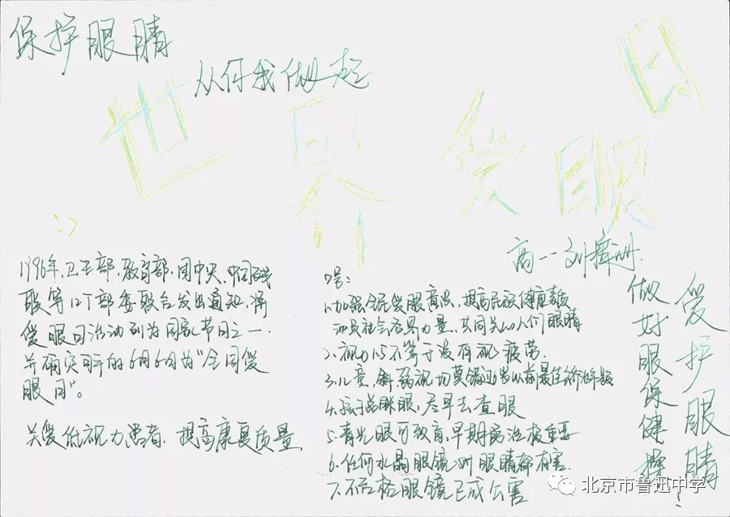 保护眼睛
从你我做起
世界爱眼日
:)
高一 刘
1996年,卫生部、教育部、团中央、中国残
联等12个部委联合发出通知,将
爱眼日活动列为国家节日之一,
并确定每年的6月6日为“全国爱
眼日”。
关爱低视力患者,提高康复质量
口号:
1.加强全民爱眼意识,提高民族健康素质
动员社会各界力量,共同关心人们眼睛
2、视力1.5不等于没有视疲劳.
3.儿童,斜、弱视,切莫错过岁以前最佳治疗年龄
4.孩子总眯眼,尽早去查眼
5.青光眼可致盲,早期防治极重要
6.任何水晶眼镜对眼睛都有害.
7.不合格眼镜已成公害
爱护眼睛
做好眼保健操!
北京市鲁迅中学